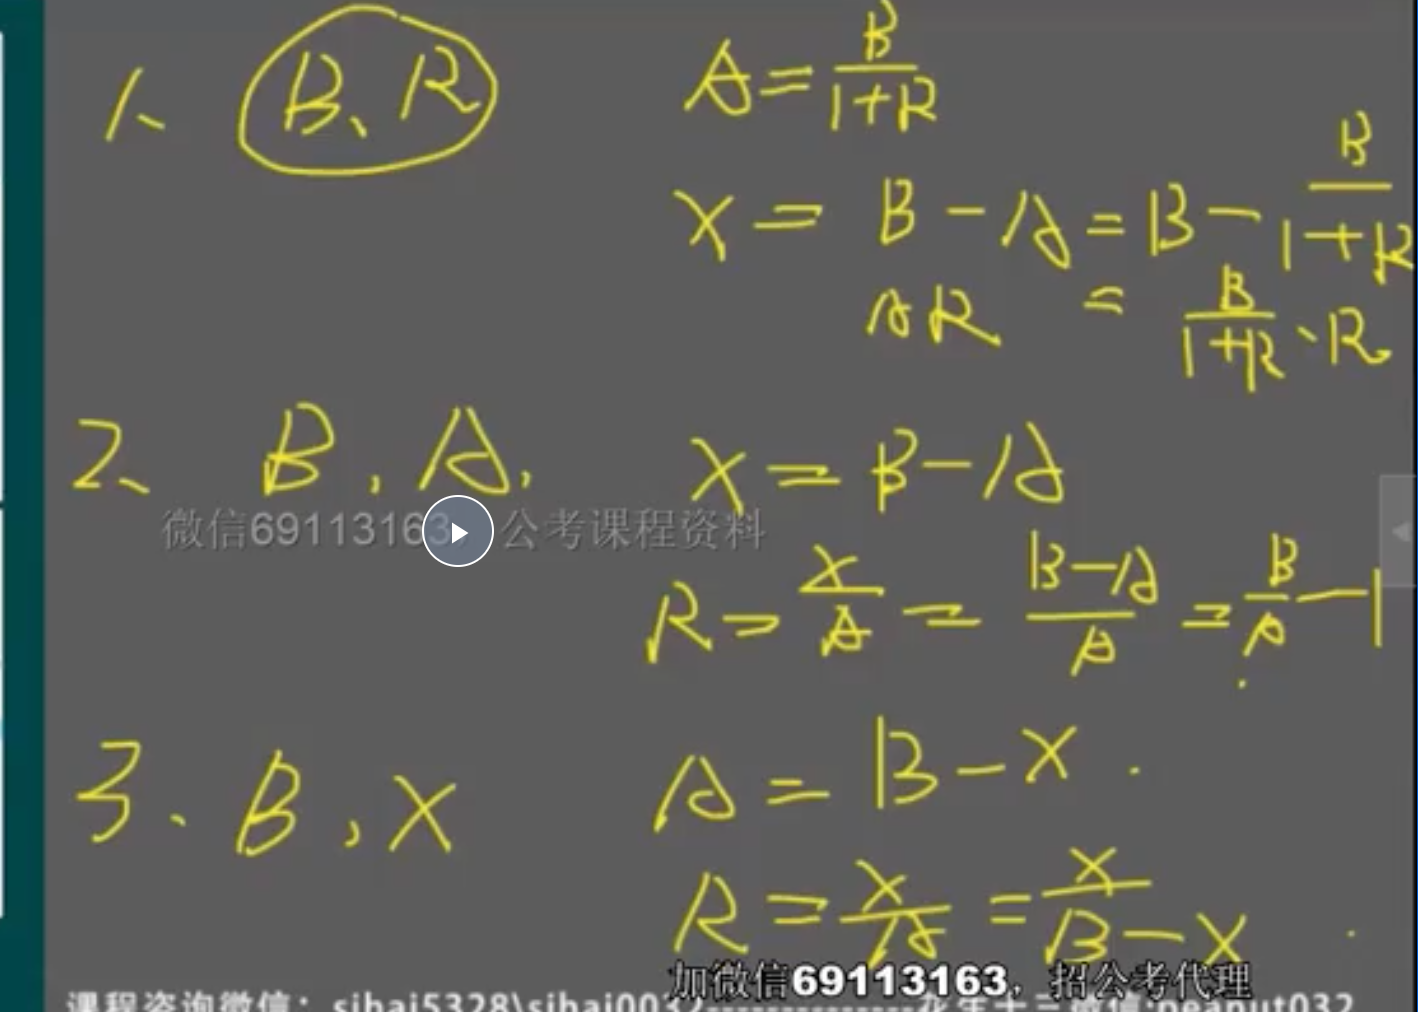 1、 B、R A = B/(1+R)
X = B - A = B - B/(1+R)
AR = B/(1+R)、R
2、 B, A, X = B - A
微信69113163,公考课程资料
R = X/A = (B-A)/A = B/A - 1
3、B, X A = B - X
R = X/A = X/(B-X)
加微信69113163，招公考代理
课程咨询微信：sihai5328\sihai0032--------------花生十三微信:peanut032